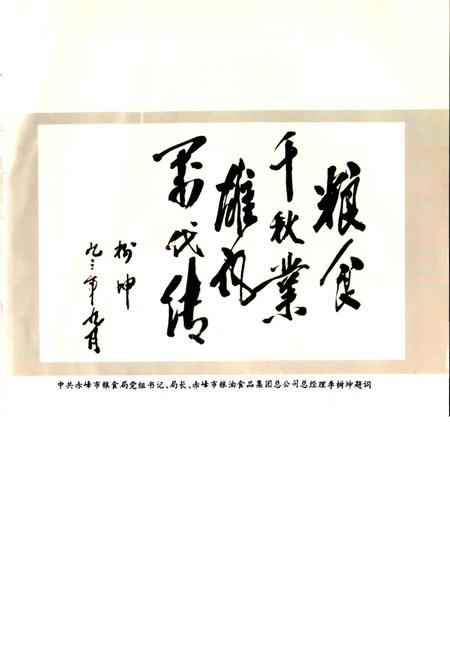 粮食
千秋业
雄风
万代传
树坤
九三年九月
中共赤峰市粮食局党组书记、局长、赤峰市粮油食品集团总公司总经理李树坤题词